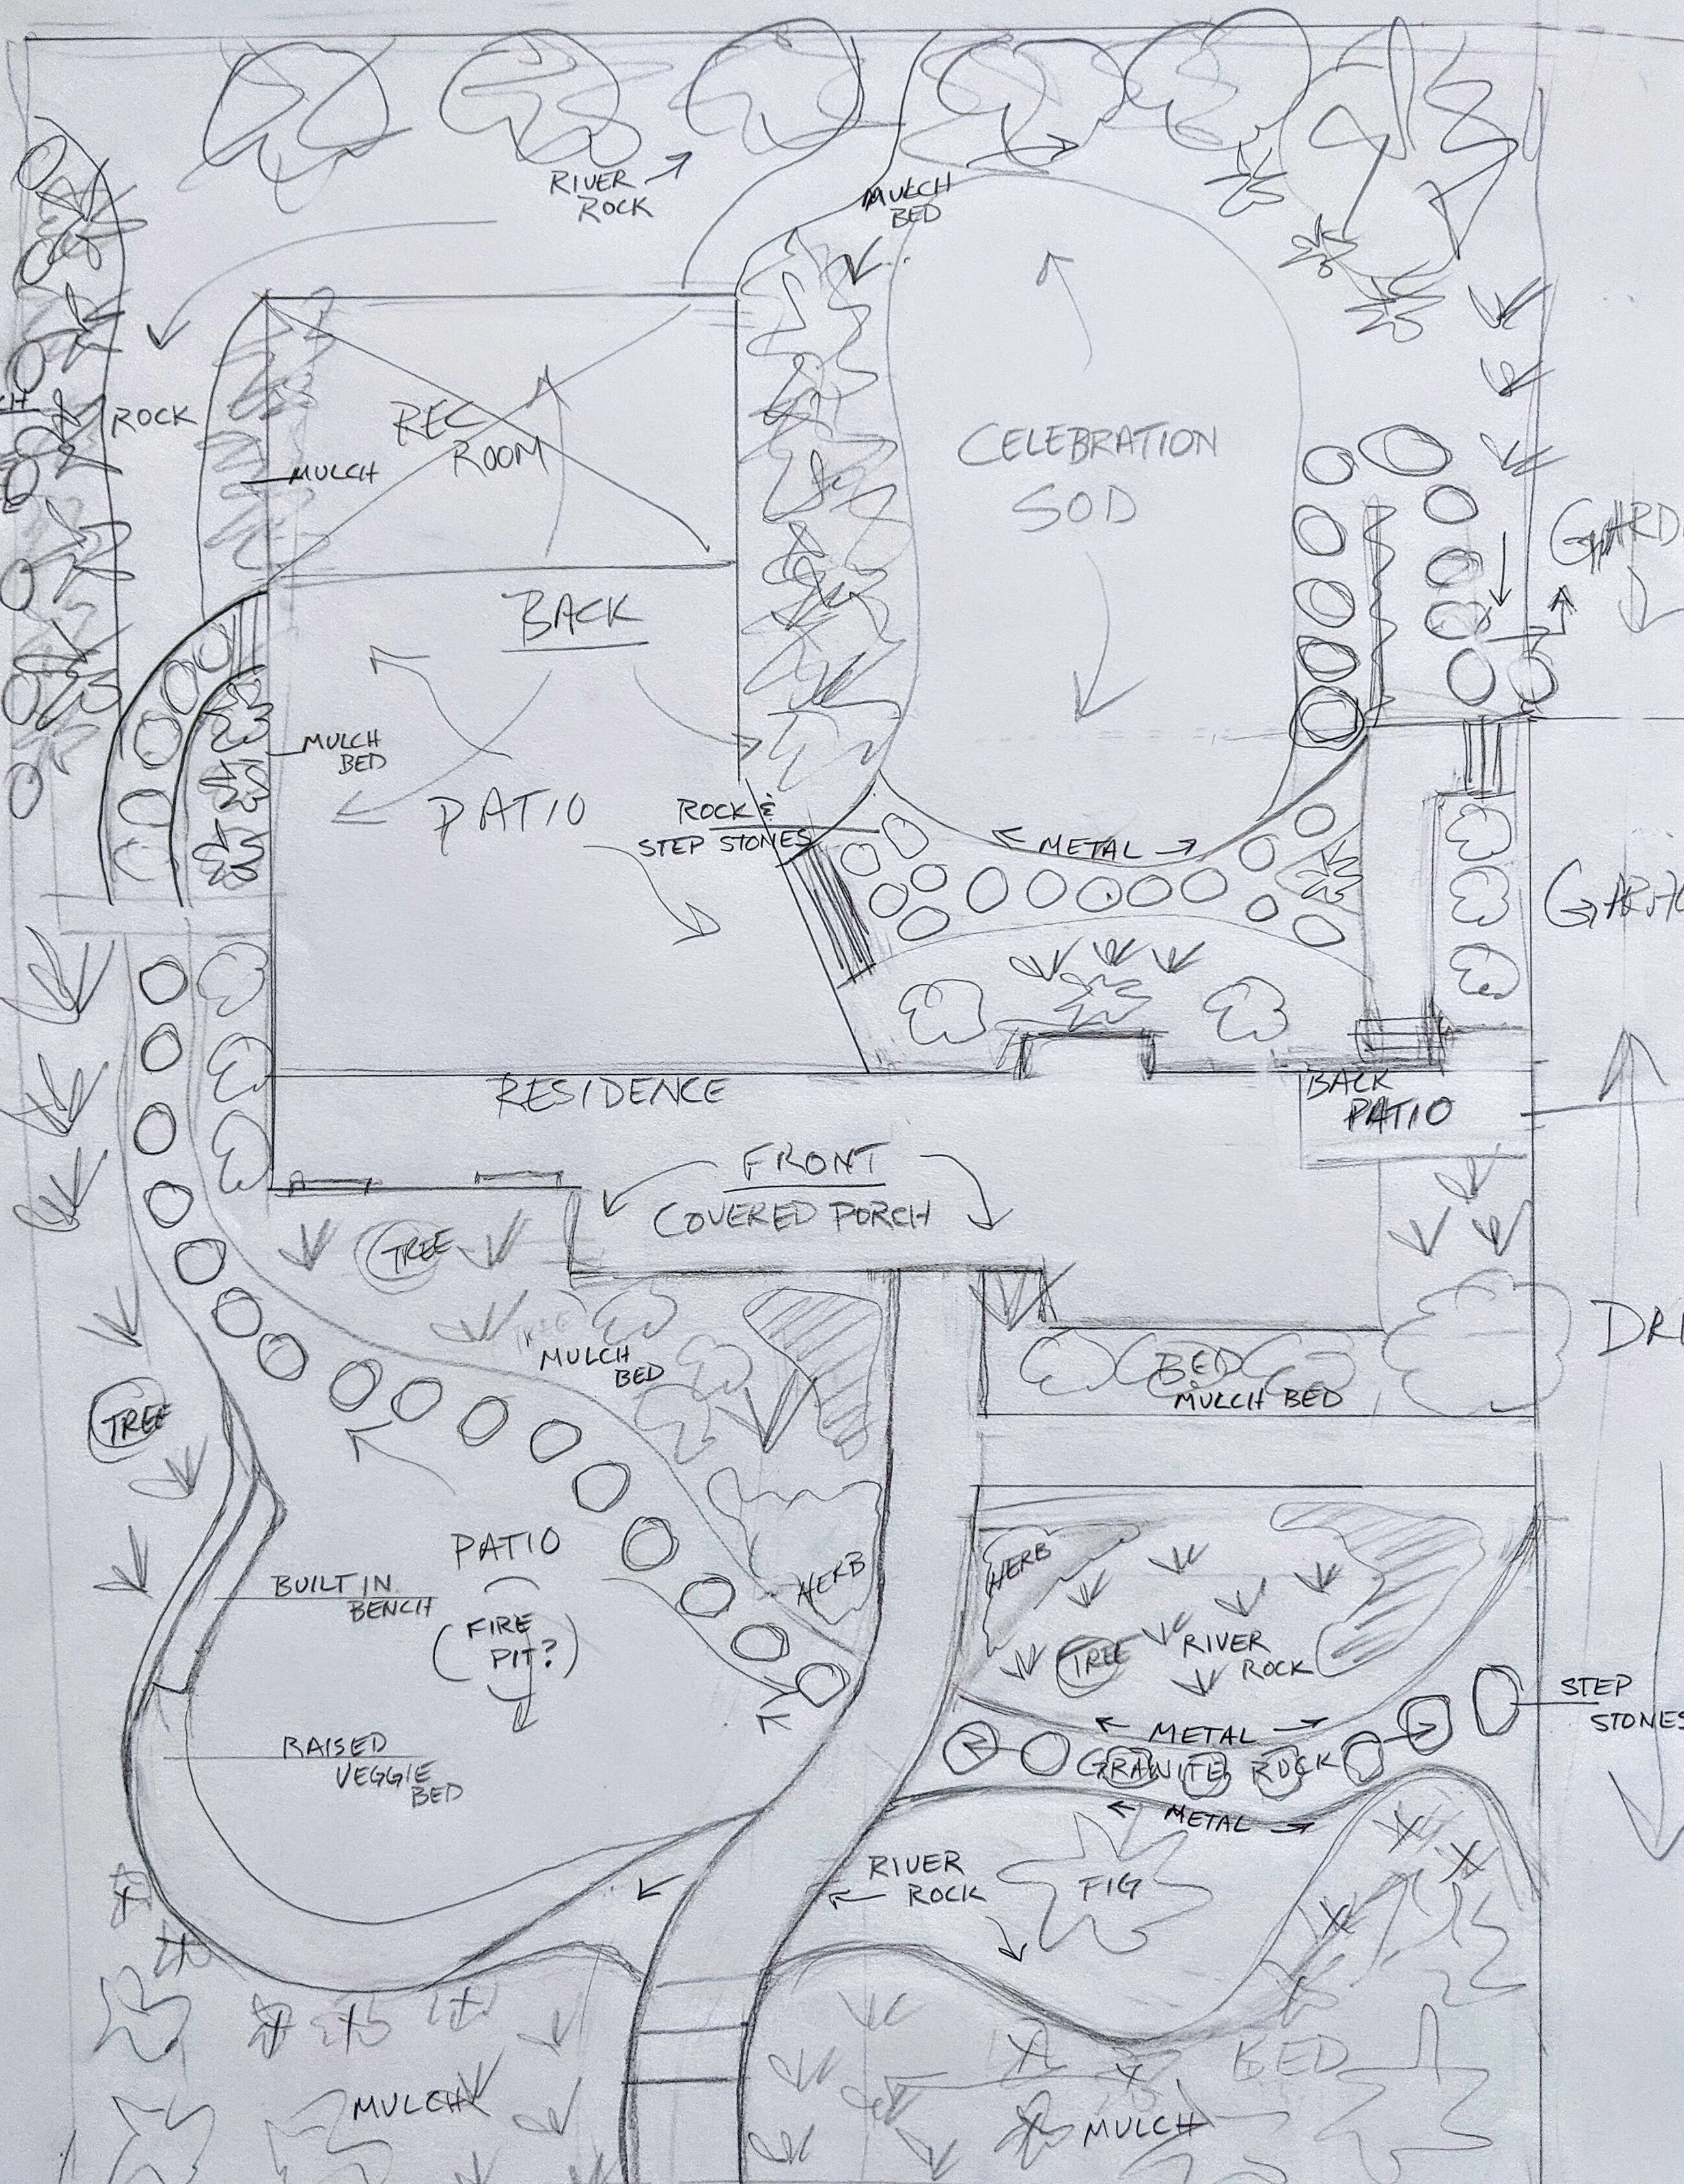 RIVER
ROCK
MULCH
BED
ROCK
REC
ROOM
MULCH
CELEBRATION
SOD
BACK
MULCH
BED
PATIO
ROCK &
STEP STONES
METAL
RESIDENCE
BACK
PATIO
FRONT
COVERED PORCH
TREE
MULCH
BED
BED
MULCH BED
TREE
PATIO
BUILT IN
BENCH
(FIRE
PIT?)
HERB
HERB
TREE
RIVER
ROCK
STEP
STONES
METAL
GRANITE ROCK
METAL
RAISED
VEGGIE
BED
RIVER
ROCK
FIG
BED
MULCH
MULCH